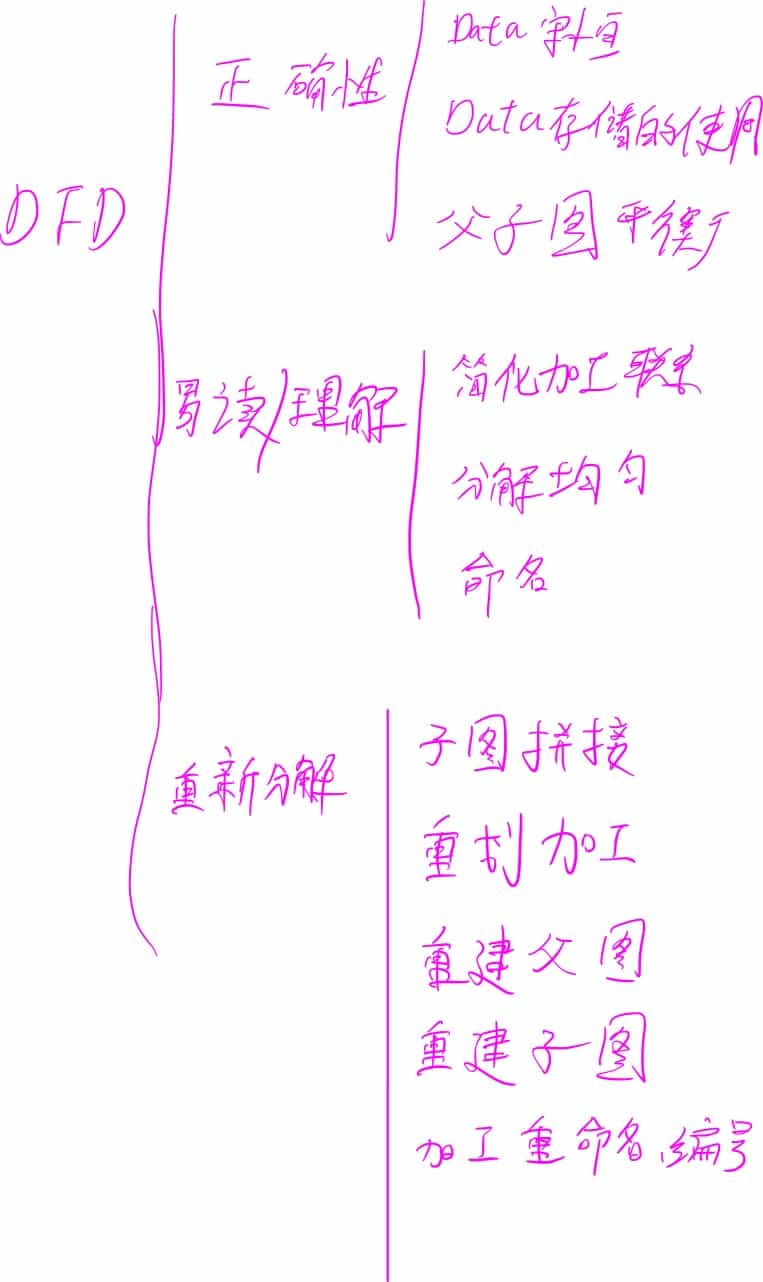 DFD
正确性
Data守恒
Data存储的使用
父子图平衡
易读/理解
简化加工联系
分解均匀
命名
重新分解
子图拼接
重划加工
重建父图
重建子图
加工重命名、编号